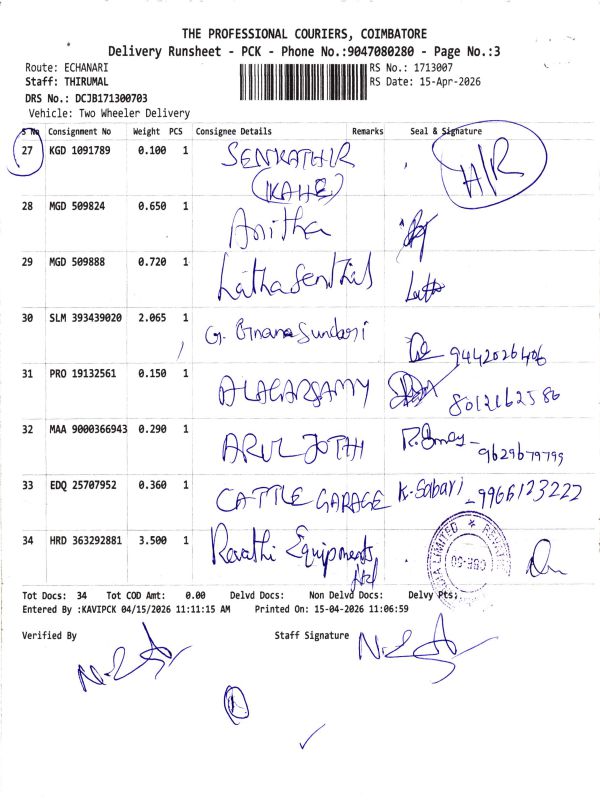 THE PROFESSIONAL COURIERS, COIMBATORE
Delivery Runsheet - PCK - Phone No.:9047080280 - Page No.:3
Route: ECHANARI RS No.: 1713007
Staff: THIRUMAL RS Date: 15-Apr-2026
DRS No.: DCJB171300703
Vehicle: Two Wheeler Delivery
S No Consignment No Weight PCS Consignee Details Remarks Seal & Signature
27 KGD 1091789 0.100 1 SENKATHIR H/R
(KAHE)
28 MGD 509824 0.650 1 Anitha
29 MGD 509888 0.720 1 Latha Senthil Latha
30 SLM 393439020 2.065 1 G. Gnana Sundari 9442026406
31 PRO 19132561 0.150 1 ALAGARSAMY 8012162586
32 MAA 9000366943 0.290 1 ARUL JOTHI 9629679799
33 EDQ 25707952 0.360 1 CATTLE GARAGE K. Sabari - 9966123222
34 HRD 363292881 3.500 1 Revathi Equipments
Ltd
Tot Docs: 34 Tot COD Amt: 0.00 Delvd Docs: Non Delvd Docs: Delvy Pts:
Entered By :KAVIPCK 04/15/2026 11:11:15 AM Printed On: 15-04-2026 11:06:59
Verified By Staff Signature